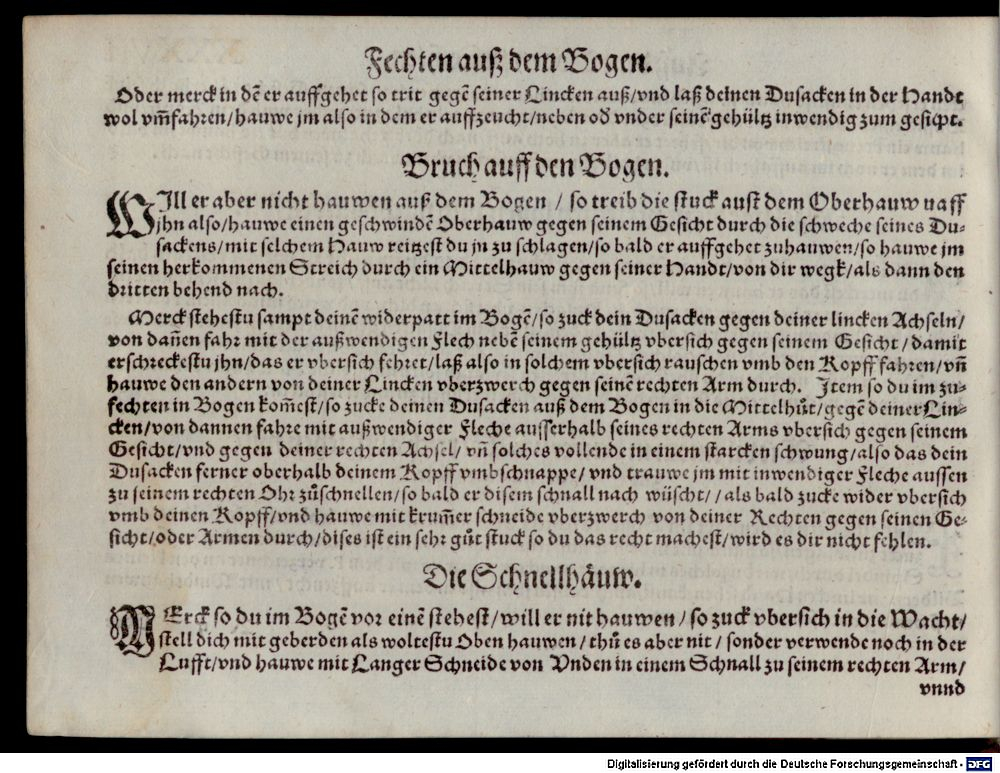 Fechten auß dem Bogen.
Oder merck in dē er auffgehet so trit gegē seiner Lincken auß/vnd laß deinen Dusacken in der Handt
wol vm̄fahren/hauwe jm also in dem er auffzeucht/neben oď vnder seinē gehültz inwendig zum gesicht.
Bruch auff den Bogen.
WIll er aber nicht hauwen auß dem Bogen / so treib die stuck aust dem Oberhauw uaff
jhn also/hauwe einen geschwindē Oberhauw gegen seinem Gesicht durch die schweche seines Du-
sackens/mit selchem Hauw reitzest du jn zu schlagen/so bald er auffgehet zuhauwen/so hauwe jm
seinen herkommenen Streich durch ein Mittelhauw gegen seiner Handt/von dir wegk/als dann den
dritten behend nach.
Merck stehestu sampt deinē widerpatt im Bogē/so zuck dein Dusacken gegen deiner lincken Achseln/
von dan̄en fahr mit der außwendigen Flech nebē seinem gehültz vbersich gegen seinem Gesicht/damit
erschreckestu jhn/das er vbersich fehret/laß also in solchem vbersich rauschen vmb den Kopff fahren/vn̄
hauwe den andern von deiner Lincken vberzwerch gegen seinē rechten Arm durch. Item so du im zu-
fechten in Bogen kom̄est/so zucke deinen Dusacken auß dem Bogen in die Mittelhůt/gegē deiner Lin-
cken/von dannen fahre mit außwendiger Fleche ausserhalb seines rechten Arms vbersich gegen seinem
Gesicht/vnd gegen deiner rechten Achsel/ vn̄ solches vollende in einem starcken schwung/also das dein
Dusacken ferner oberhalb deinem Kopff vmbschnappe/ vnd trauwe jm mit inwendiger Fleche aussen
zu seinem rechten Ohr zůschnellen/so bald er disem schnall nach wüscht/ /als bald zucke wider vbersich
vmb deinen Kopff/vnd hauwe mit krum̄er schneide vberzwerch von deiner Rechten gegen seinen Ge-
sicht/oder Armen durch/dises ist ein sehr gůt stuck so du das recht machest/wird es dir nicht fehlen.
Die Schnellhäuw.
MErck so du im Bogē vor einē stehest/will er nit hauwen/so zuck vbersich in die Wacht/
stell dich mit geberden als woltestu Oben hauwen/thů es aber nit/sonder verwende noch in der
Lufft/vnd hauwe mit Langer Schneide von Vnden in einem Schnall zu seinem rechten Arm/
vnnd
Digitalisierung gefördert durch die Deutsche Forschungsgemeinschaft - DFG